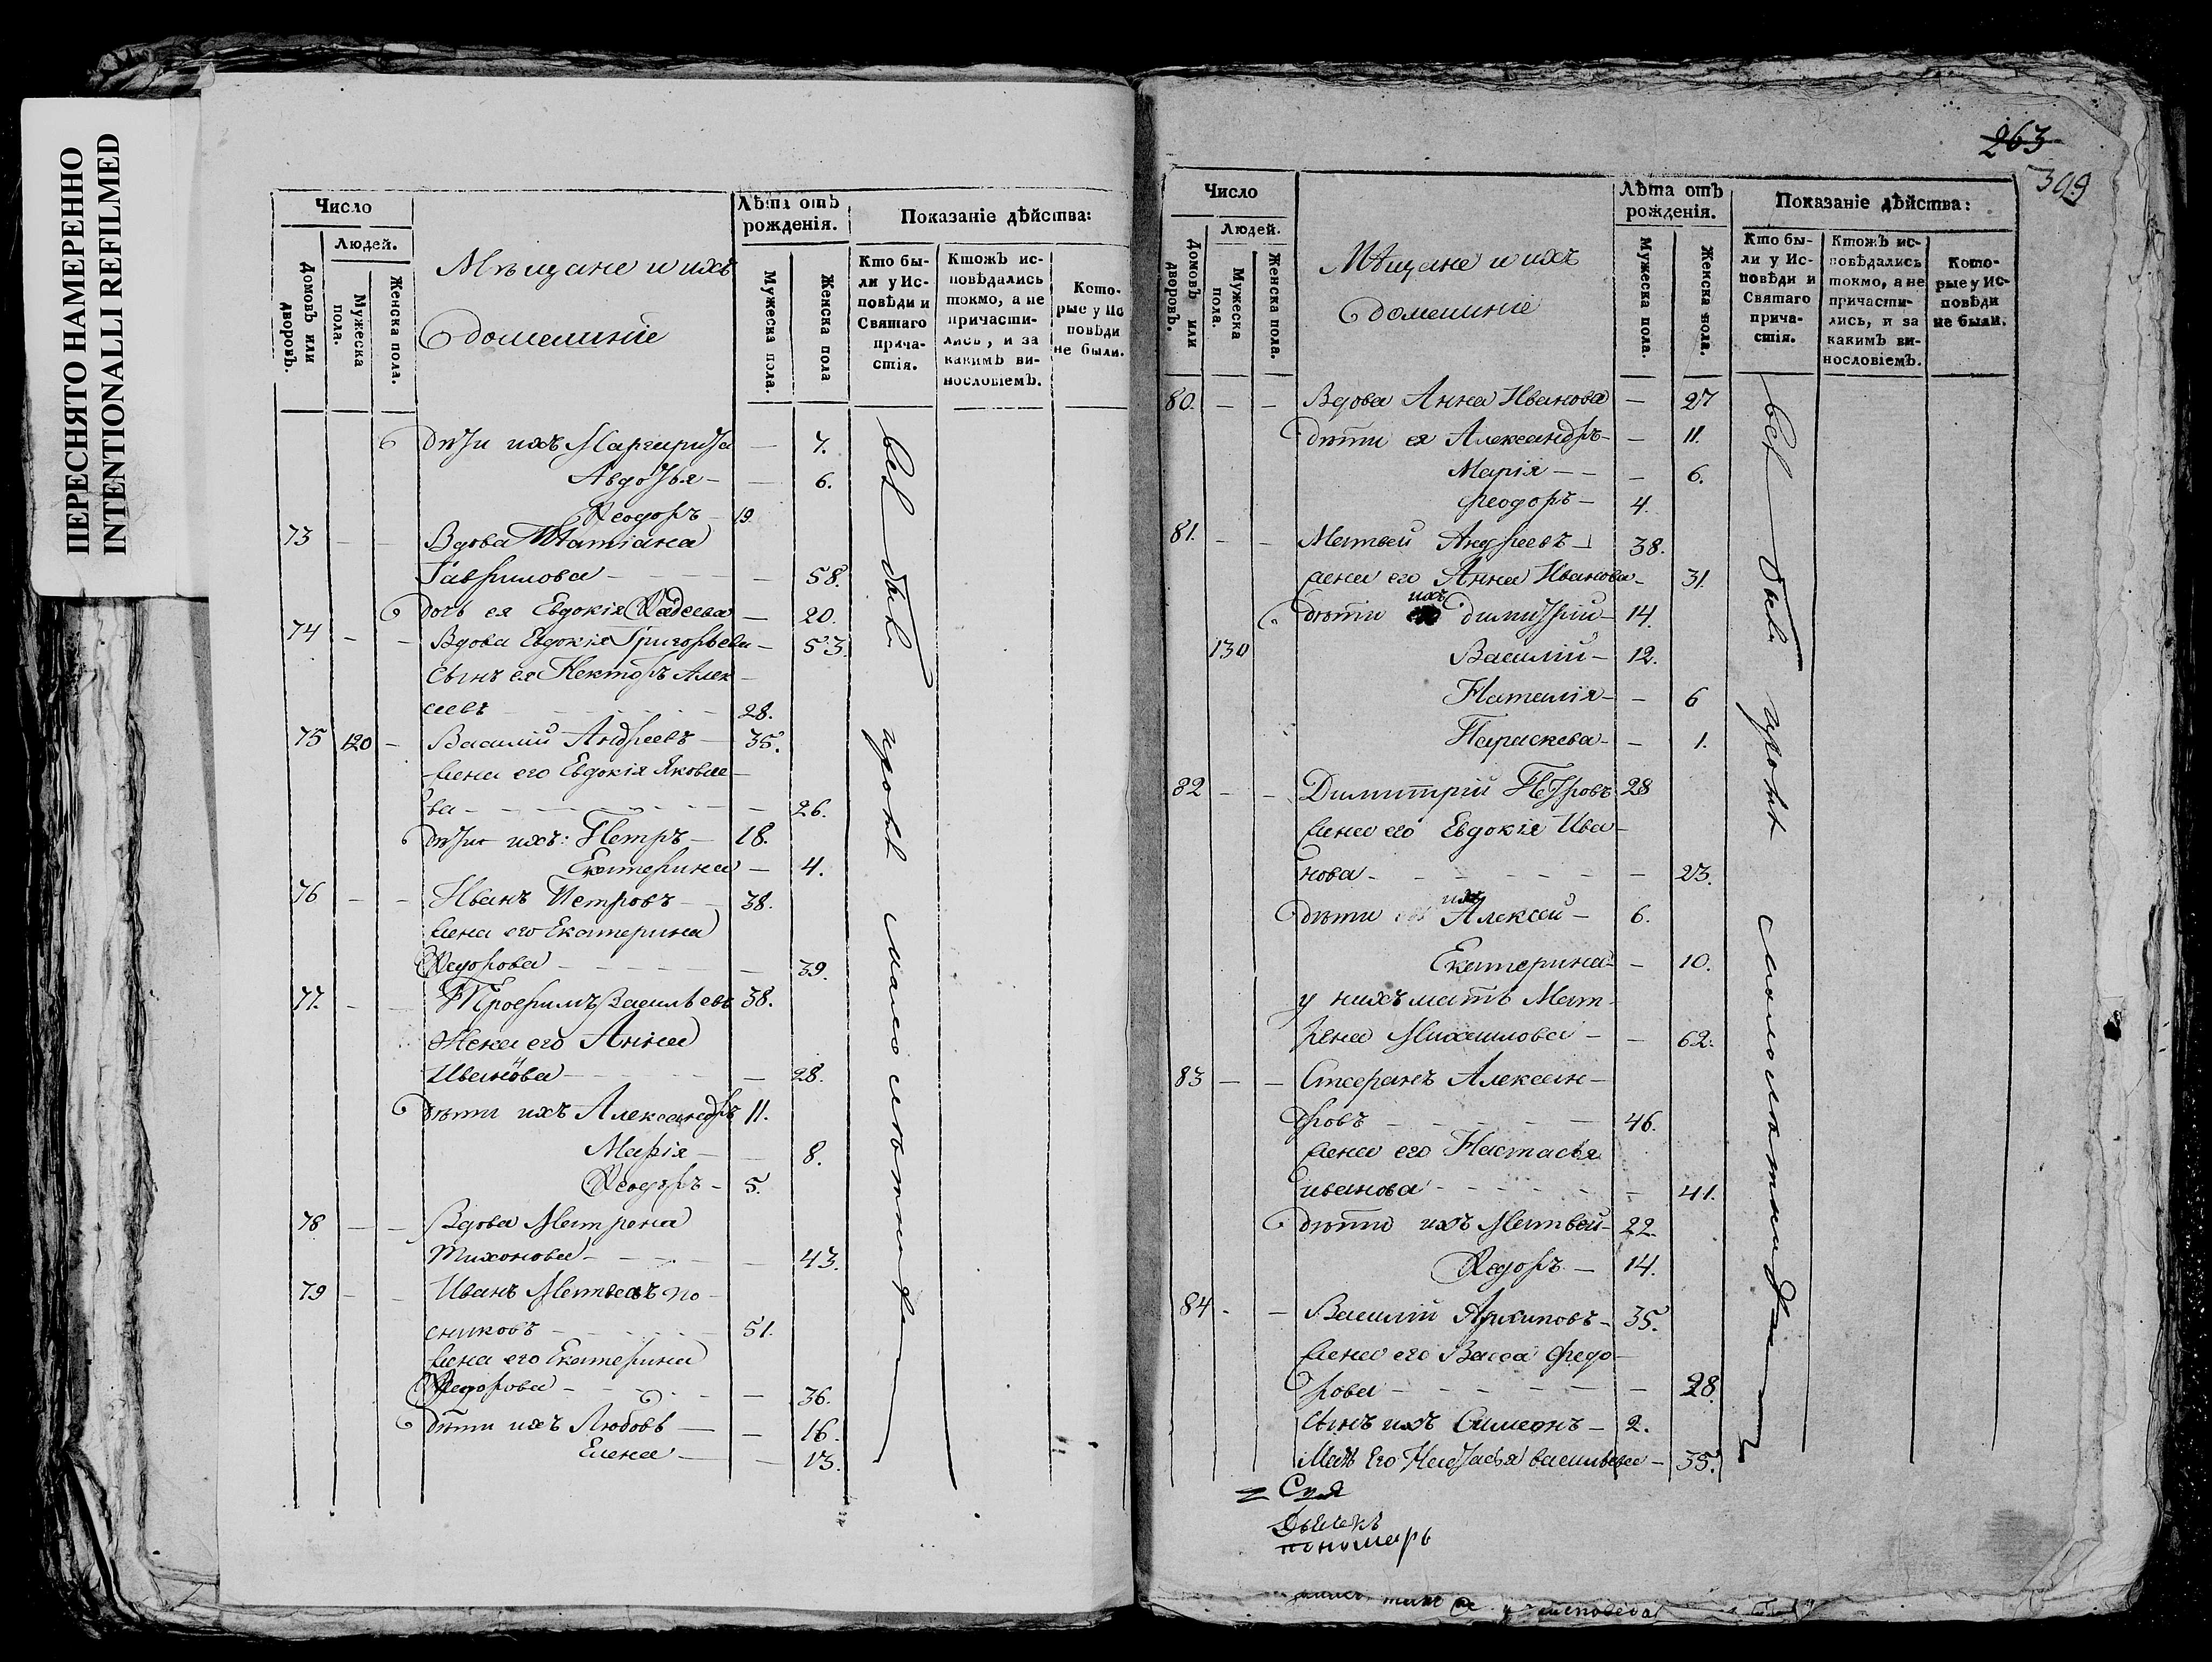 ПЕРЕСНЯТО НАМЕРЕННО
INTENTIONALLI REFILMED
Число
Людей.
Домовъ или дворовъ.
Мужеска пола.
Женска пола.
Мѣщане и ихъ
домашніе
Лѣта отъ рожденія.
Мужеска пола.
Женска пола
Показаніе дѣйства:
Кто были у Исповѣди и Святаго причастія.
Ктожъ исповѣдались токмо, а не причастились, и за какимъ винословіемъ.
Которые у Исповѣди не были.
дѣти ихъ Маргарита — 7.
Авдотья — 6.
Ѳеодоръ — 19.
73 — — Вдова Татіана
Гаврилова — 58.
дочь ея Евдокія Ѳадеева — 20.
74 — — Вдова Евдокія Григорьева — 53.
сынъ ея Некторъ Алек-
сеевъ 28.
75 120 — Василій Андреевъ — 35.
жена его Евдокія Яковле-
ва — 26.
дѣти ихъ: Петръ — 18.
Екатерина — 4.
76 — — Иванъ Петровъ — 38.
жена его Екатерина
Ѳедорова — 39.
77. — — Трофимъ Васильевъ 38.
Жена его Анна
Иванова — 28.
дѣти ихъ Александръ 11.
Марія — 8.
Ѳеодоръ — 5.
78 — — Вдова Матрена
Тихонова — 43.
79 — — Иванъ Матвеевъ по-
сниковъ — 51.
жена его Екатерина
Ѳедорова — 36.
дѣти ихъ Любовь — 16.
Елена — 13.
всѣ были кромѣ малолѣтнихъ
263
399
Число
Людей.
Домовъ или дворовъ.
Мужеска пола.
Женска пола.
Мѣщане и ихъ
домашніе
Лѣта отъ рожденія.
Мужеска пола.
Женска пола.
Показаніе дѣйства:
Кто были у Исповѣди и Святаго причастія.
Ктожъ исповѣдались токмо, а не причастились, и за какимъ винословіемъ.
Которые у Исповѣди не были.
80. — — Вдова Анна Иванова — 27
дѣти ея Александръ — 11.
Марія — 6.
Феодоръ — 4.
81. — — Матвей Андреевъ — 38.
жена его Анна Иванова — 31.
дѣти ихъ Димитрій — 14.
130 Василій — 12.
Наталія — 6
Параскева — 1.
82 — — Димитрій Петровъ 28
жена его Евдокія Ива-
нова — 23.
дѣти ихъ Алексей — 6.
Екатерина — 10.
у нихъ мать Мат-
рена Михаилова — 62.
83 — — Стефанъ Алексан-
дровъ — 46.
жена его Настасья
иванова — 41.
дѣти ихъ Матвей — 22.
Ѳедоръ — 14.
84 — — Василій Архиповъ — 35.
жена его Васса Федо-
рова — 28
сынъ ихъ Симеонъ — 2.
Мать Его Настасья васильева — 35.
всѣ были кромѣ малолѣтнихъ
пономарь